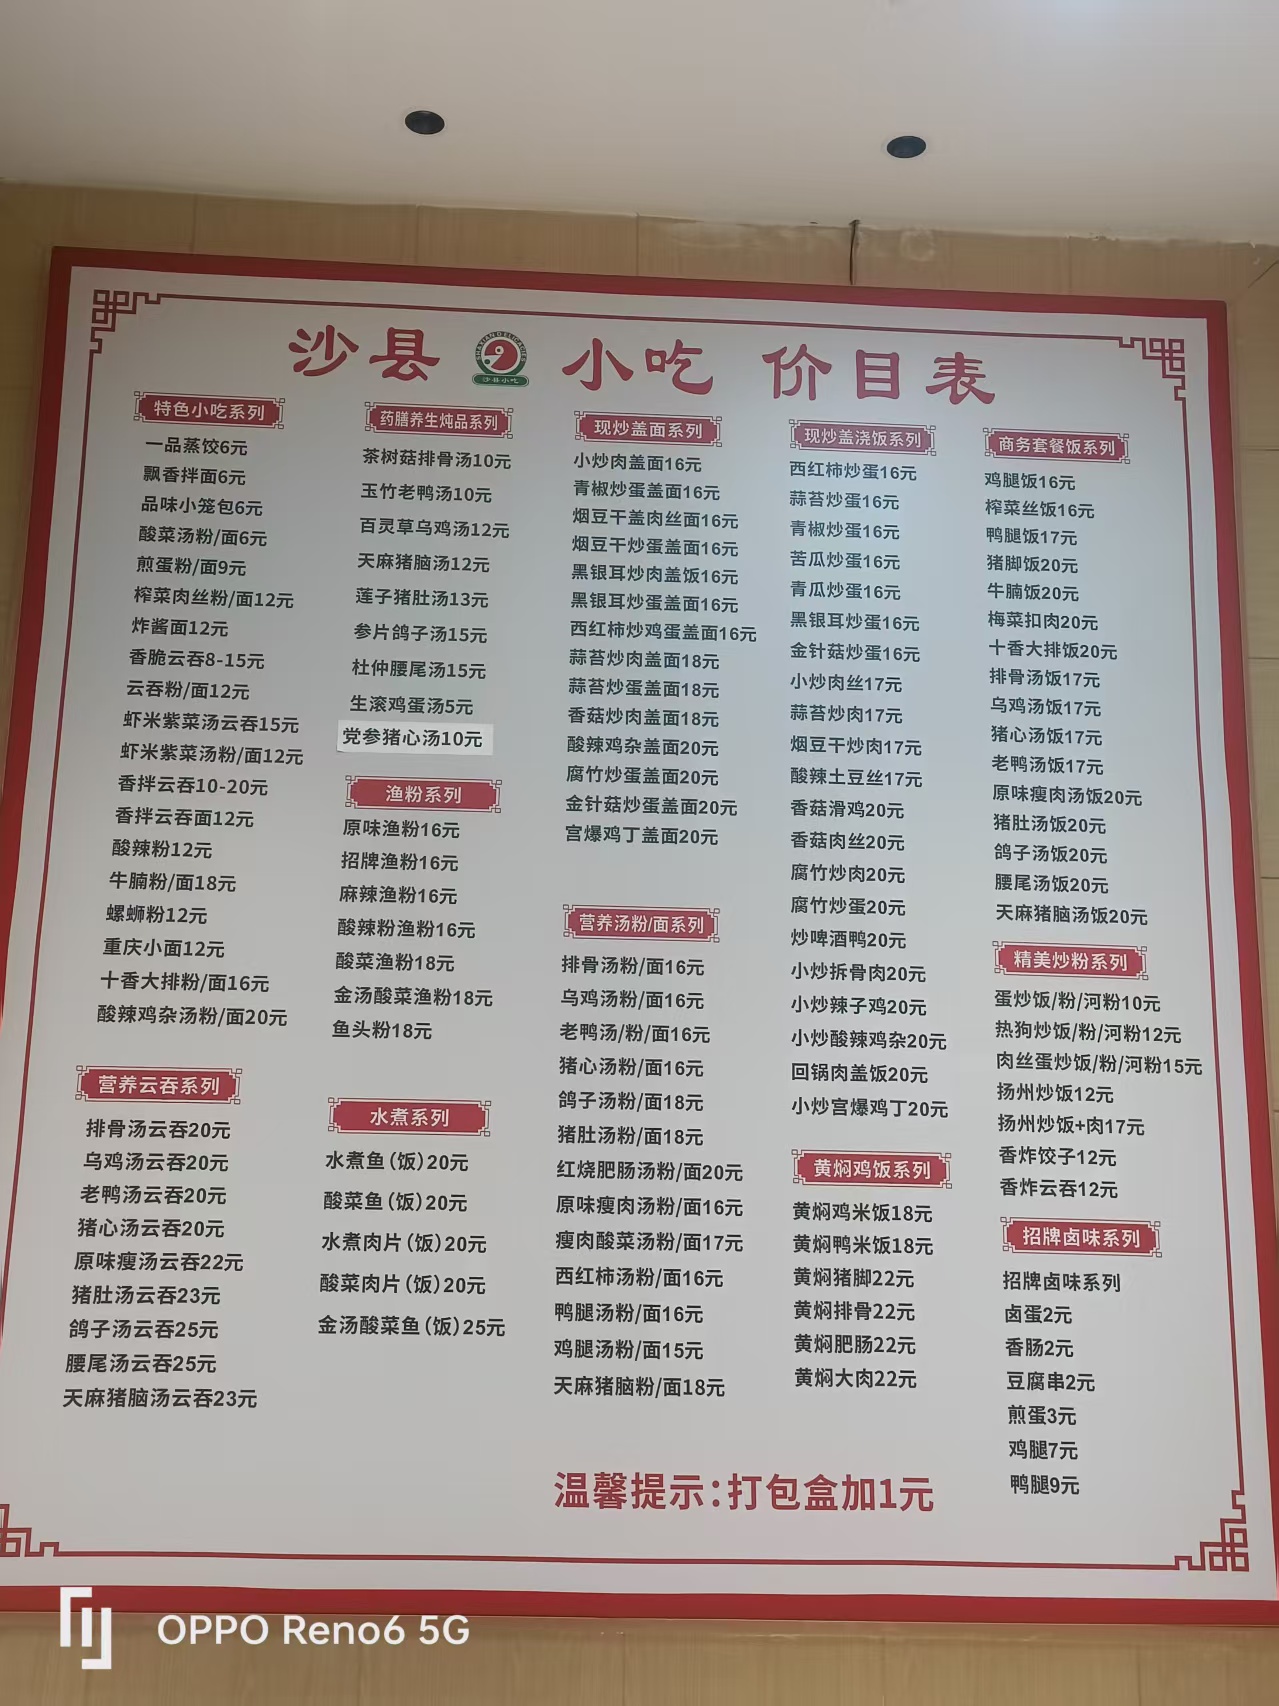 沙县 小吃 价目表
SHAXIAN DELICACIES
沙县小吃
特色小吃系列
一品蒸饺6元
飘香拌面6元
品味小笼包6元
酸菜汤粉/面6元
煎蛋粉/面9元
榨菜肉丝粉/面12元
炸酱面12元
香脆云吞8-15元
云吞粉/面12元
虾米紫菜汤云吞15元
虾米紫菜汤粉/面12元
香拌云吞10-20元
香拌云吞面12元
酸辣粉12元
牛腩粉/面18元
螺蛳粉12元
重庆小面12元
十香大排粉/面16元
酸辣鸡杂汤粉/面20元
营养云吞系列
排骨汤云吞20元
乌鸡汤云吞20元
老鸭汤云吞20元
猪心汤云吞20元
原味瘦汤云吞22元
猪肚汤云吞23元
鸽子汤云吞25元
腰尾汤云吞25元
天麻猪脑汤云吞23元
药膳养生炖品系列
茶树菇排骨汤10元
玉竹老鸭汤10元
百灵草乌鸡汤12元
天麻猪脑汤12元
莲子猪肚汤13元
参片鸽子汤15元
杜仲腰尾汤15元
生滚鸡蛋汤5元
党参猪心汤10元
渔粉系列
原味渔粉16元
招牌渔粉16元
麻辣渔粉16元
酸辣粉渔粉16元
酸菜渔粉18元
金汤酸菜渔粉18元
鱼头粉18元
水煮系列
水煮鱼(饭)20元
酸菜鱼(饭)20元
水煮肉片(饭)20元
酸菜肉片(饭)20元
金汤酸菜鱼(饭)25元
现炒盖面系列
小炒肉盖面16元
青椒炒蛋盖面16元
烟豆干盖肉丝面16元
烟豆干炒蛋盖面16元
黑银耳炒肉盖饭16元
黑银耳炒蛋盖面16元
西红柿炒鸡蛋盖面16元
蒜苔炒肉盖面18元
蒜苔炒蛋盖面18元
香菇炒肉盖面18元
酸辣鸡杂盖面20元
腐竹炒蛋盖面20元
金针菇炒蛋盖面20元
宫爆鸡丁盖面20元
营养汤粉/面系列
排骨汤粉/面16元
乌鸡汤粉/面16元
老鸭汤/粉/面16元
猪心汤粉/面16元
鸽子汤粉/面18元
猪肚汤粉/面18元
红烧肥肠汤粉/面20元
原味瘦肉汤粉/面16元
瘦肉酸菜汤粉/面17元
西红柿汤粉/面16元
鸭腿汤粉/面16元
鸡腿汤粉/面15元
天麻猪脑粉/面18元
现炒盖浇饭系列
西红柿炒蛋16元
蒜苔炒蛋16元
青椒炒蛋16元
苦瓜炒蛋16元
青瓜炒蛋16元
黑银耳炒蛋16元
金针菇炒蛋16元
小炒肉丝17元
蒜苔炒肉17元
烟豆干炒肉17元
酸辣土豆丝17元
香菇滑鸡20元
香菇肉丝20元
腐竹炒肉20元
腐竹炒蛋20元
炒啤酒鸭20元
小炒拆骨肉20元
小炒辣子鸡20元
小炒酸辣鸡杂20元
回锅肉盖饭20元
小炒宫爆鸡丁20元
黄焖鸡饭系列
黄焖鸡米饭18元
黄焖鸭米饭18元
黄焖猪脚22元
黄焖排骨22元
黄焖肥肠22元
黄焖大肉22元
商务套餐饭系列
鸡腿饭16元
榨菜丝饭16元
鸭腿饭17元
猪脚饭20元
牛腩饭20元
梅菜扣肉20元
十香大排饭20元
排骨汤饭17元
乌鸡汤饭17元
猪心汤饭17元
老鸭汤饭17元
原味瘦肉汤饭20元
猪肚汤饭20元
鸽子汤饭20元
腰尾汤饭20元
天麻猪脑汤饭20元
精美炒粉系列
蛋炒饭/粉/河粉10元
热狗炒饭/粉/河粉12元
肉丝蛋炒饭/粉/河粉15元
扬州炒饭12元
扬州炒饭+肉17元
香炸饺子12元
香炸云吞12元
招牌卤味系列
招牌卤味系列
卤蛋2元
香肠2元
豆腐串2元
煎蛋3元
鸡腿7元
鸭腿9元
温馨提示:打包盒加1元
OPPO Reno6 5G